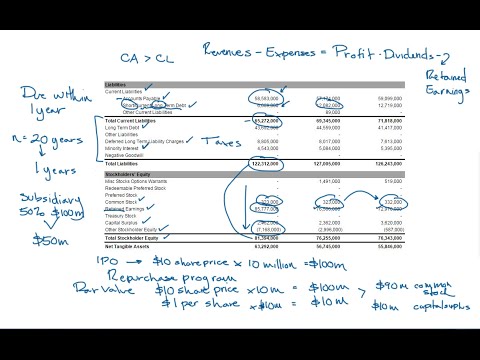 CA > CL
Revenues - Expenses = Profit - Dividends
Retained
Earnings
Due within
1 year
n = 20 years
1 years
Subsidiary
50% $100m
$50m
Taxes
Liabilities
Current Liabilities
Accounts Payable
57,174,000 59,099,000
Short/Current Long Term Debt
12,719,000
Other Current Liabilities
89,000
Total Current Liabilities 65,272,000 69,345,000 71,818,000
Long Term Debt 44,559,000 41,417,000
Other Liabilities
Deferred Long Term Liability Charges 8,017,000 7,813,000
Minority Interest 4,543,000 5,084,000 5,395,000
Negative Goodwill
Total Liabilities 122,312,000 127,005,000 126,243,000
Stockholders' Equity
Misc Stocks Options Warrants 1,491,000 519,000
Redeemable Preferred Stock
Preferred Stock
Common Stock 323,000 323,000 332,000
Retained Earnings
Treasury Stock
Capital Surplus 2,362,000 3,620,000
Other Stockholder Equity (7,168,000) (2,996,000) (587,000)
Total Stockholder Equity 81,394,000 76,255,000 76,343,000
Net Tangible Assets
IPO → $10 share price x 10 million = $100m
Repurchase program
Par Value $10 share price x 10m = $100m > $90m common stock
$1 per share x $10m = $10m $10m capital surplus